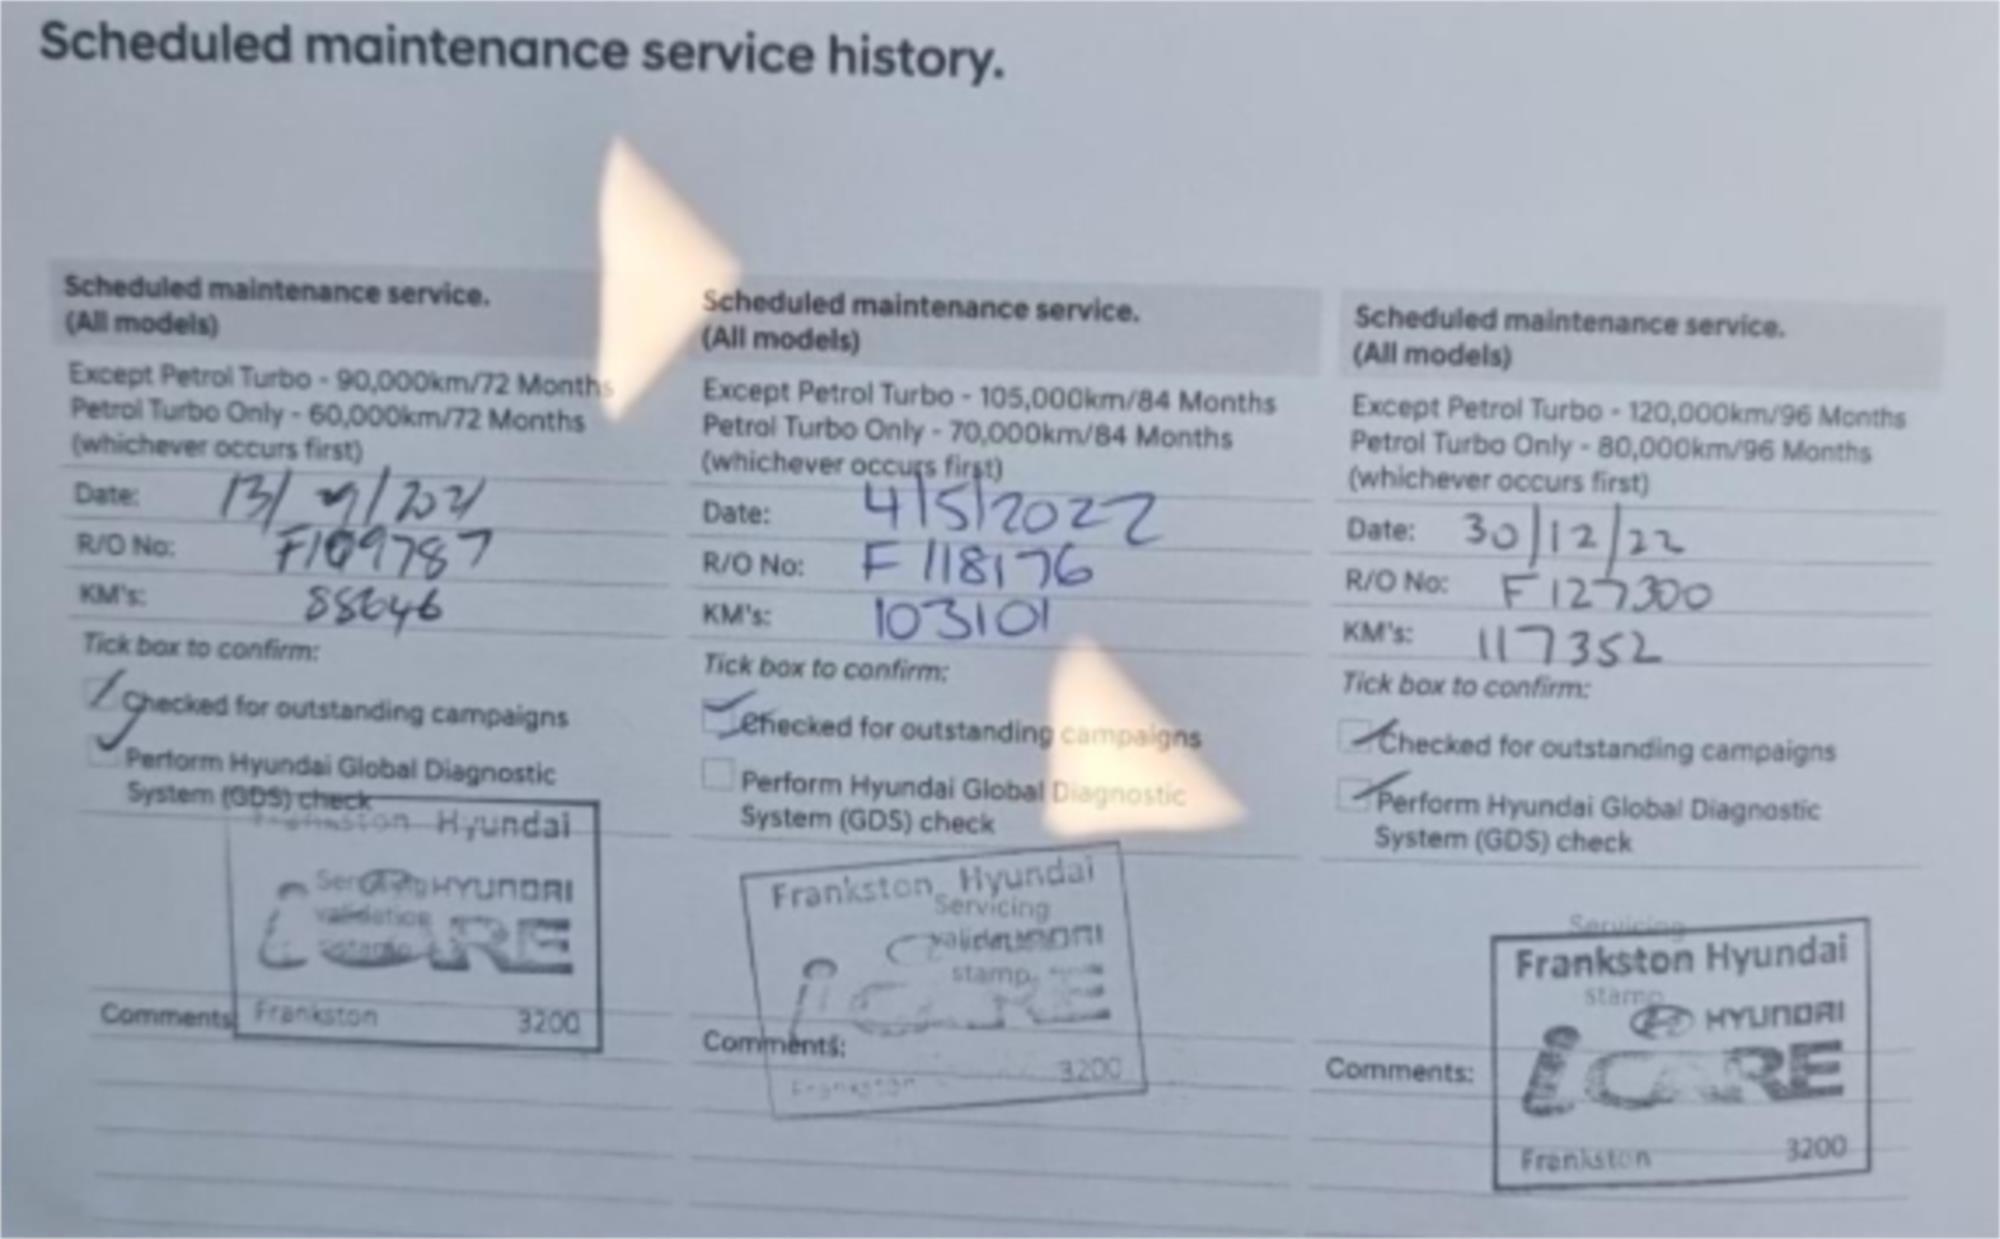 Scheduled maintenance service history.
Scheduled maintenance service.
(All models)
Except Petrol Turbo - 90,000km/72 Months
Petrol Turbo Only - 60,000km/72 Months
(whichever occurs first)
Date: 13/
R/O No: F109787
KM's: 88646
Tick box to confirm:
Checked for outstanding campaigns
Perform Hyundai Global Diagnostic
System (GDS) check
Frankston Hyundai
Servicing HYUNDAI
validation
iCARE
stamp
Comments
Frankston 3200
Scheduled maintenance service.
(All models)
Except Petrol Turbo - 105,000km/84 Months
Petrol Turbo Only - 70,000km/84 Months
(whichever occurs first)
Date: 4/5/2022
R/O No: F118176
KM's: 103101
Tick box to confirm:
Checked for outstanding campaigns
Perform Hyundai Global Diagnostic
System (GDS) check
Frankston Hyundai
Servicing
validation HYUNDAI
stamp
iCARE
Comments:
Frankston 3200
Scheduled maintenance service.
(All models)
Except Petrol Turbo - 120,000km/96 Months
Petrol Turbo Only - 80,000km/96 Months
(whichever occurs first)
Date: 30/12/22
R/O No: F127300
KM's: 117352
Tick box to confirm:
Checked for outstanding campaigns
Perform Hyundai Global Diagnostic
System (GDS) check
Servicing
Frankston Hyundai
stamp
HYUNDAI
iCARE
Comments:
Frankston 3200